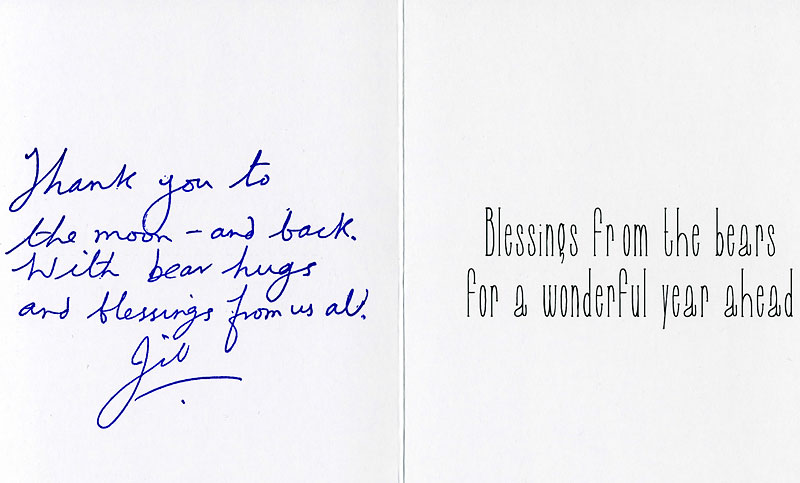 Thank you to
the moon – and back.
With bear hugs
and blessings from us all.
Jill
Blessings from the bears
for a wonderful year ahead